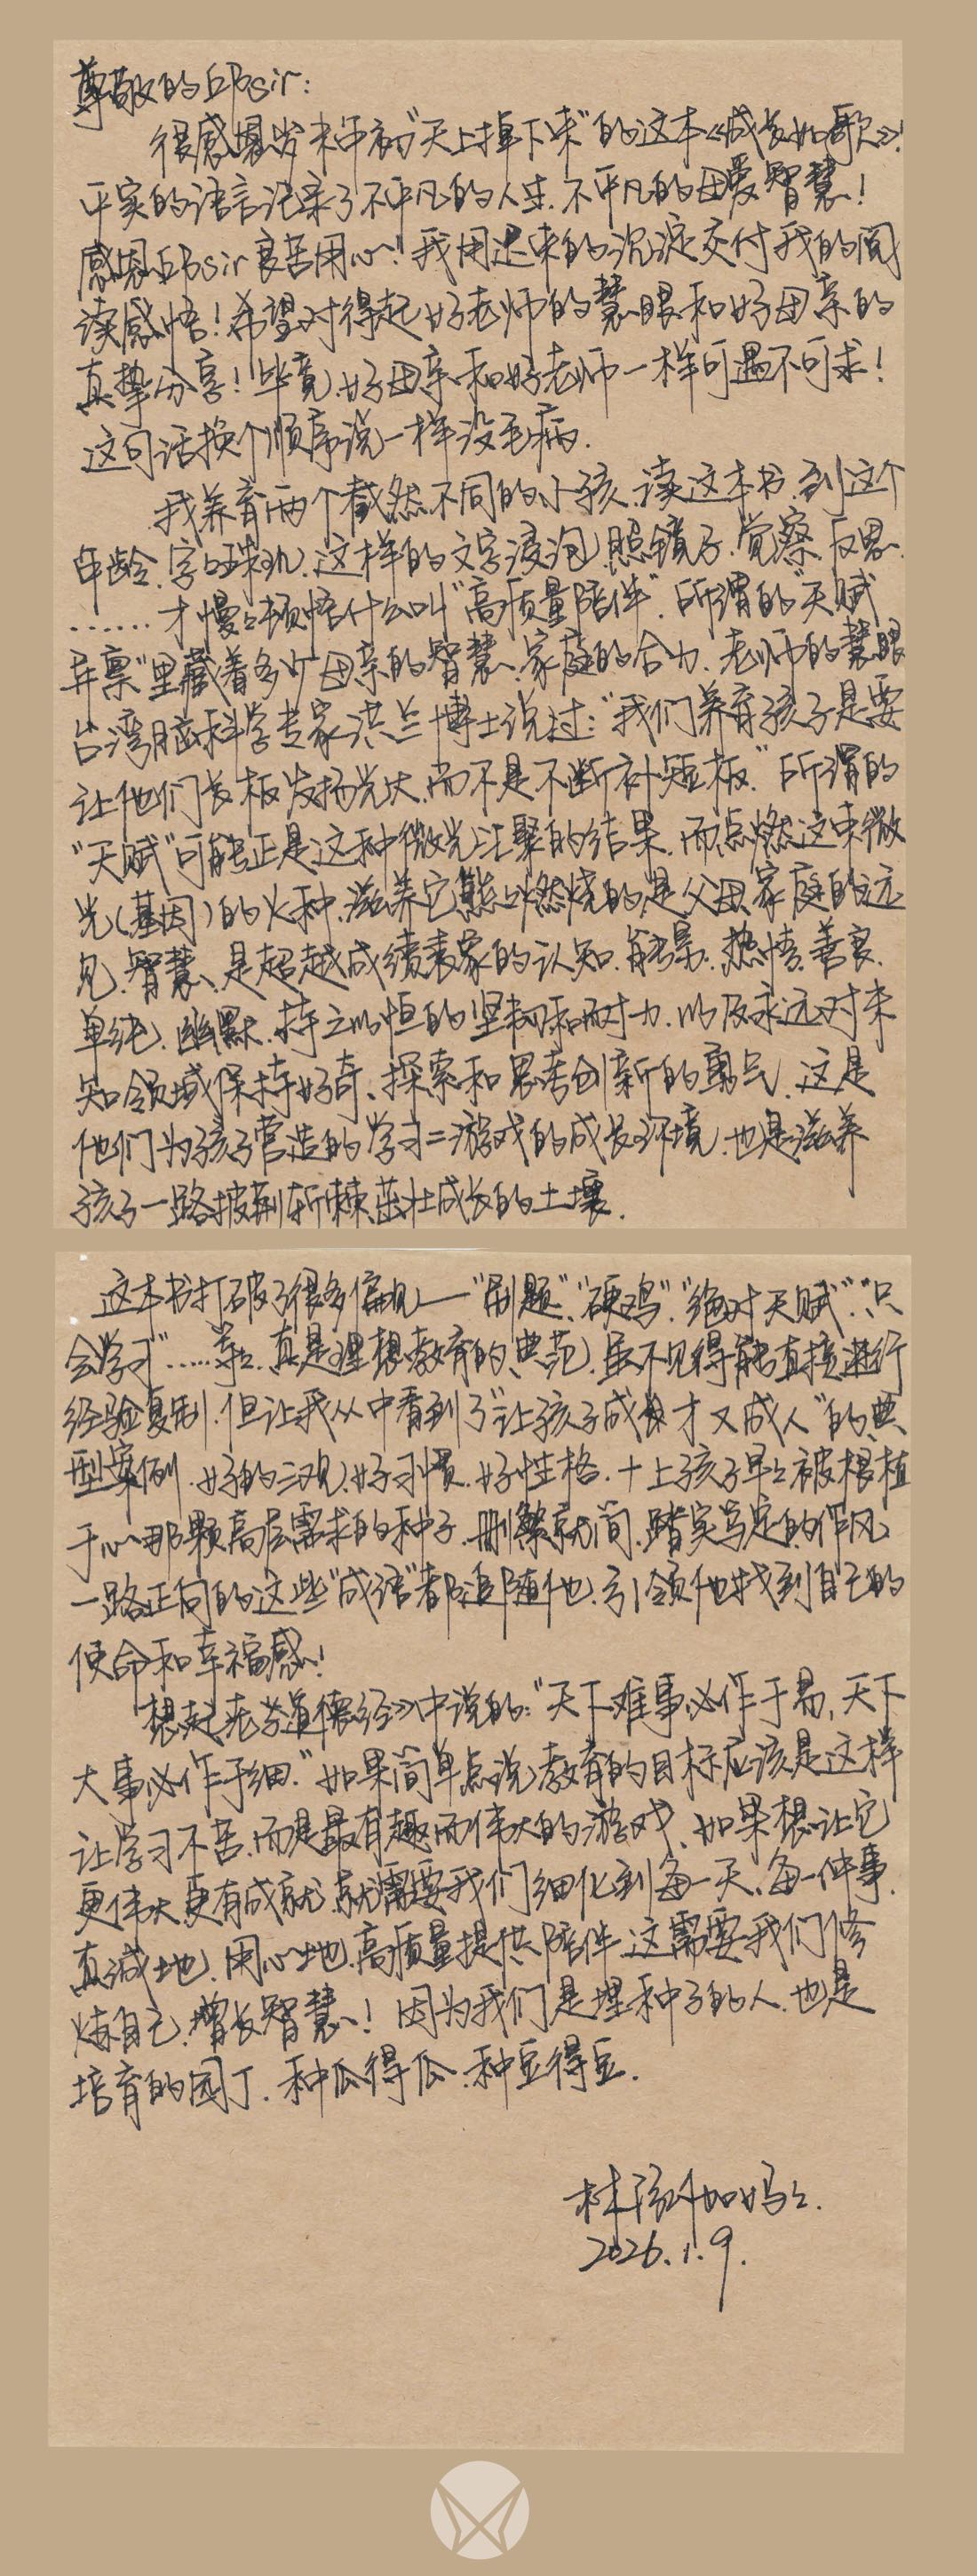 尊敬的邱sir:
很感恩岁末年初"天上掉下来"的这本《成长如歌》!
平实的语言记录了不平凡的人生、不平凡的母爱智慧!
感恩邱sir良苦用心!我用迟来的沉淀交付我的阅
读感悟!希望对得起好老师的慧眼和好母亲的
真挚分享!毕竟,好母亲和好老师一样可遇不可求!
这句话换个顺序说一样没毛病.
我养育两个截然不同的小孩,读这本书,到这个
年龄,字字珠玑,这样的文字浸泡、照镜子、觉察、反思、
……才慢慢顿悟什么叫"高质量陪伴".所谓的"天赋
异禀"里藏着多少母亲的智慧、家庭的合力、老师的慧眼
台湾脑科学专家洪兰博士说过:"我们养育孩子是要
让他们长板发扬光大,而不是不断补短板."所谓的
"天赋"可能正是这种微光汇聚的结果.而点燃这束微
光(基因)的火种、滋养它熊熊燃烧的是父母、家庭的远
见、智慧、是超越成绩表象的认知、能量、热情、善良、
单纯、幽默、持之以恒的坚韧和耐力、以及永远对未
知领域保持好奇、探索和思考创新的勇气、这是
他们为孩子营造的学习=游戏的成长环境、也是滋养
孩子一路披荆斩棘、茁壮成长的土壤.
这本书打破了很多偏见——"刷题"、"硬鸡"、"绝对天赋"、"只
会学习"……等等.真是理想教育的典范.虽不见得能直接进行
经验复制.但让我从中看到了"让孩子成才又成人"的典
型案例.好的三观、好习惯、好性格.+上孩子早早被根植
于心那颗高层需求的种子.删繁就简、踏实笃定的作风
一路正向的这些"成语"都追随他、引领他找到自己的
使命和幸福感!
想起老子《道德经》中说的:"天下难事,必作于易,天下
大事必作于细."如果简单点说教育的目标应该是这样
让学习不苦.而是最有趣而伟大的游戏、如果想让它
更伟大更有成就.就需要我们细化到每一天、每一件事.
真诚地、用心地、高质量提供陪伴.这需要我们修
炼自己、增长智慧!因为我们是埋种子的人.也是
培育的园丁.种瓜得瓜.种豆得豆.
妈妈.
2026.1.9.